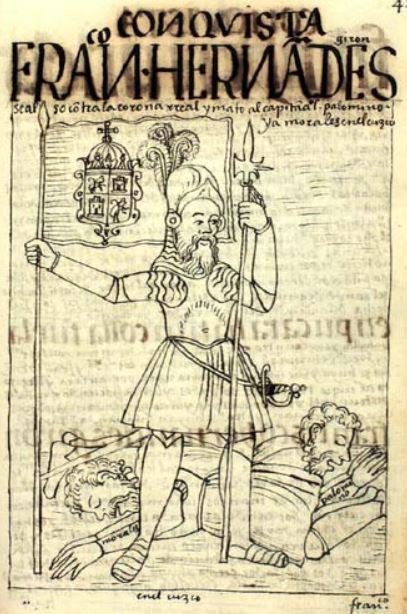 4
CONQVISTA
FRAN^CO·HERNÃDES giron
se also cõtra la corona rreal y mato al capitã l. palomino·
y a morales en el cuzco
morales
palomino
en el cuzco
fran^co